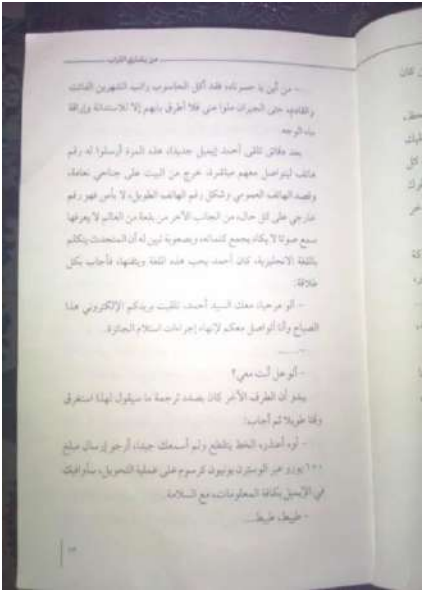 - من أين يا حسرتاه، فقد أكل الحاسوب راتبه الشهرين الفائت
والقادم، حتى الجيران ملوا مني فلا أطرق بابهم إلا للاستدانة وإراقة
ماء الوجه.
بعد دقائق تلقى أحمد إيميل جديدا، هذه المرة أرسلوا له رقم
هاتف ليتواصل معهم مباشرة، خرج من البيت على جناحي نعامة،
وقصد الهاتف العمومي وشكل رقم الهاتف الطويل، لا بأس فهو رقم
خارجي على كل حال، من الجانب الآخر من بقعة من العالم لا يعرفها
سمع صوتا لا يكاد يجمع كلماته، وبصعوبة تبين له أن المتحدث يتكلم
باللغة الانجليزية، كان أحمد يحب هذه اللغة ويتقنها، فأجاب بكل
طلاقة:
- ألو مرحبا، معك السيد أحمد، تلقيت بريدكم الإلكتروني هذا
الصباح وأنا أتواصل معكم لإنهاء إجراءات استلام الجائزة.
- .....
- ألو هل أنت معي؟
يبدو أن الطرف الآخر كان بصدد ترجمة ما سيقول لهذا استغرق
وقتا طويلا ثم أجاب:
- أوه أعذر، الخط يتقطع ولم أسمعك جيدا، أرجو إرسال مبلغ
١٠٠ يورو عبر الوسترن يونيون كرسوم على عملية التحويل، سأوافيك
في الإيميل بكافة المعلومات، مع السلامة.
- طيط، طيط...